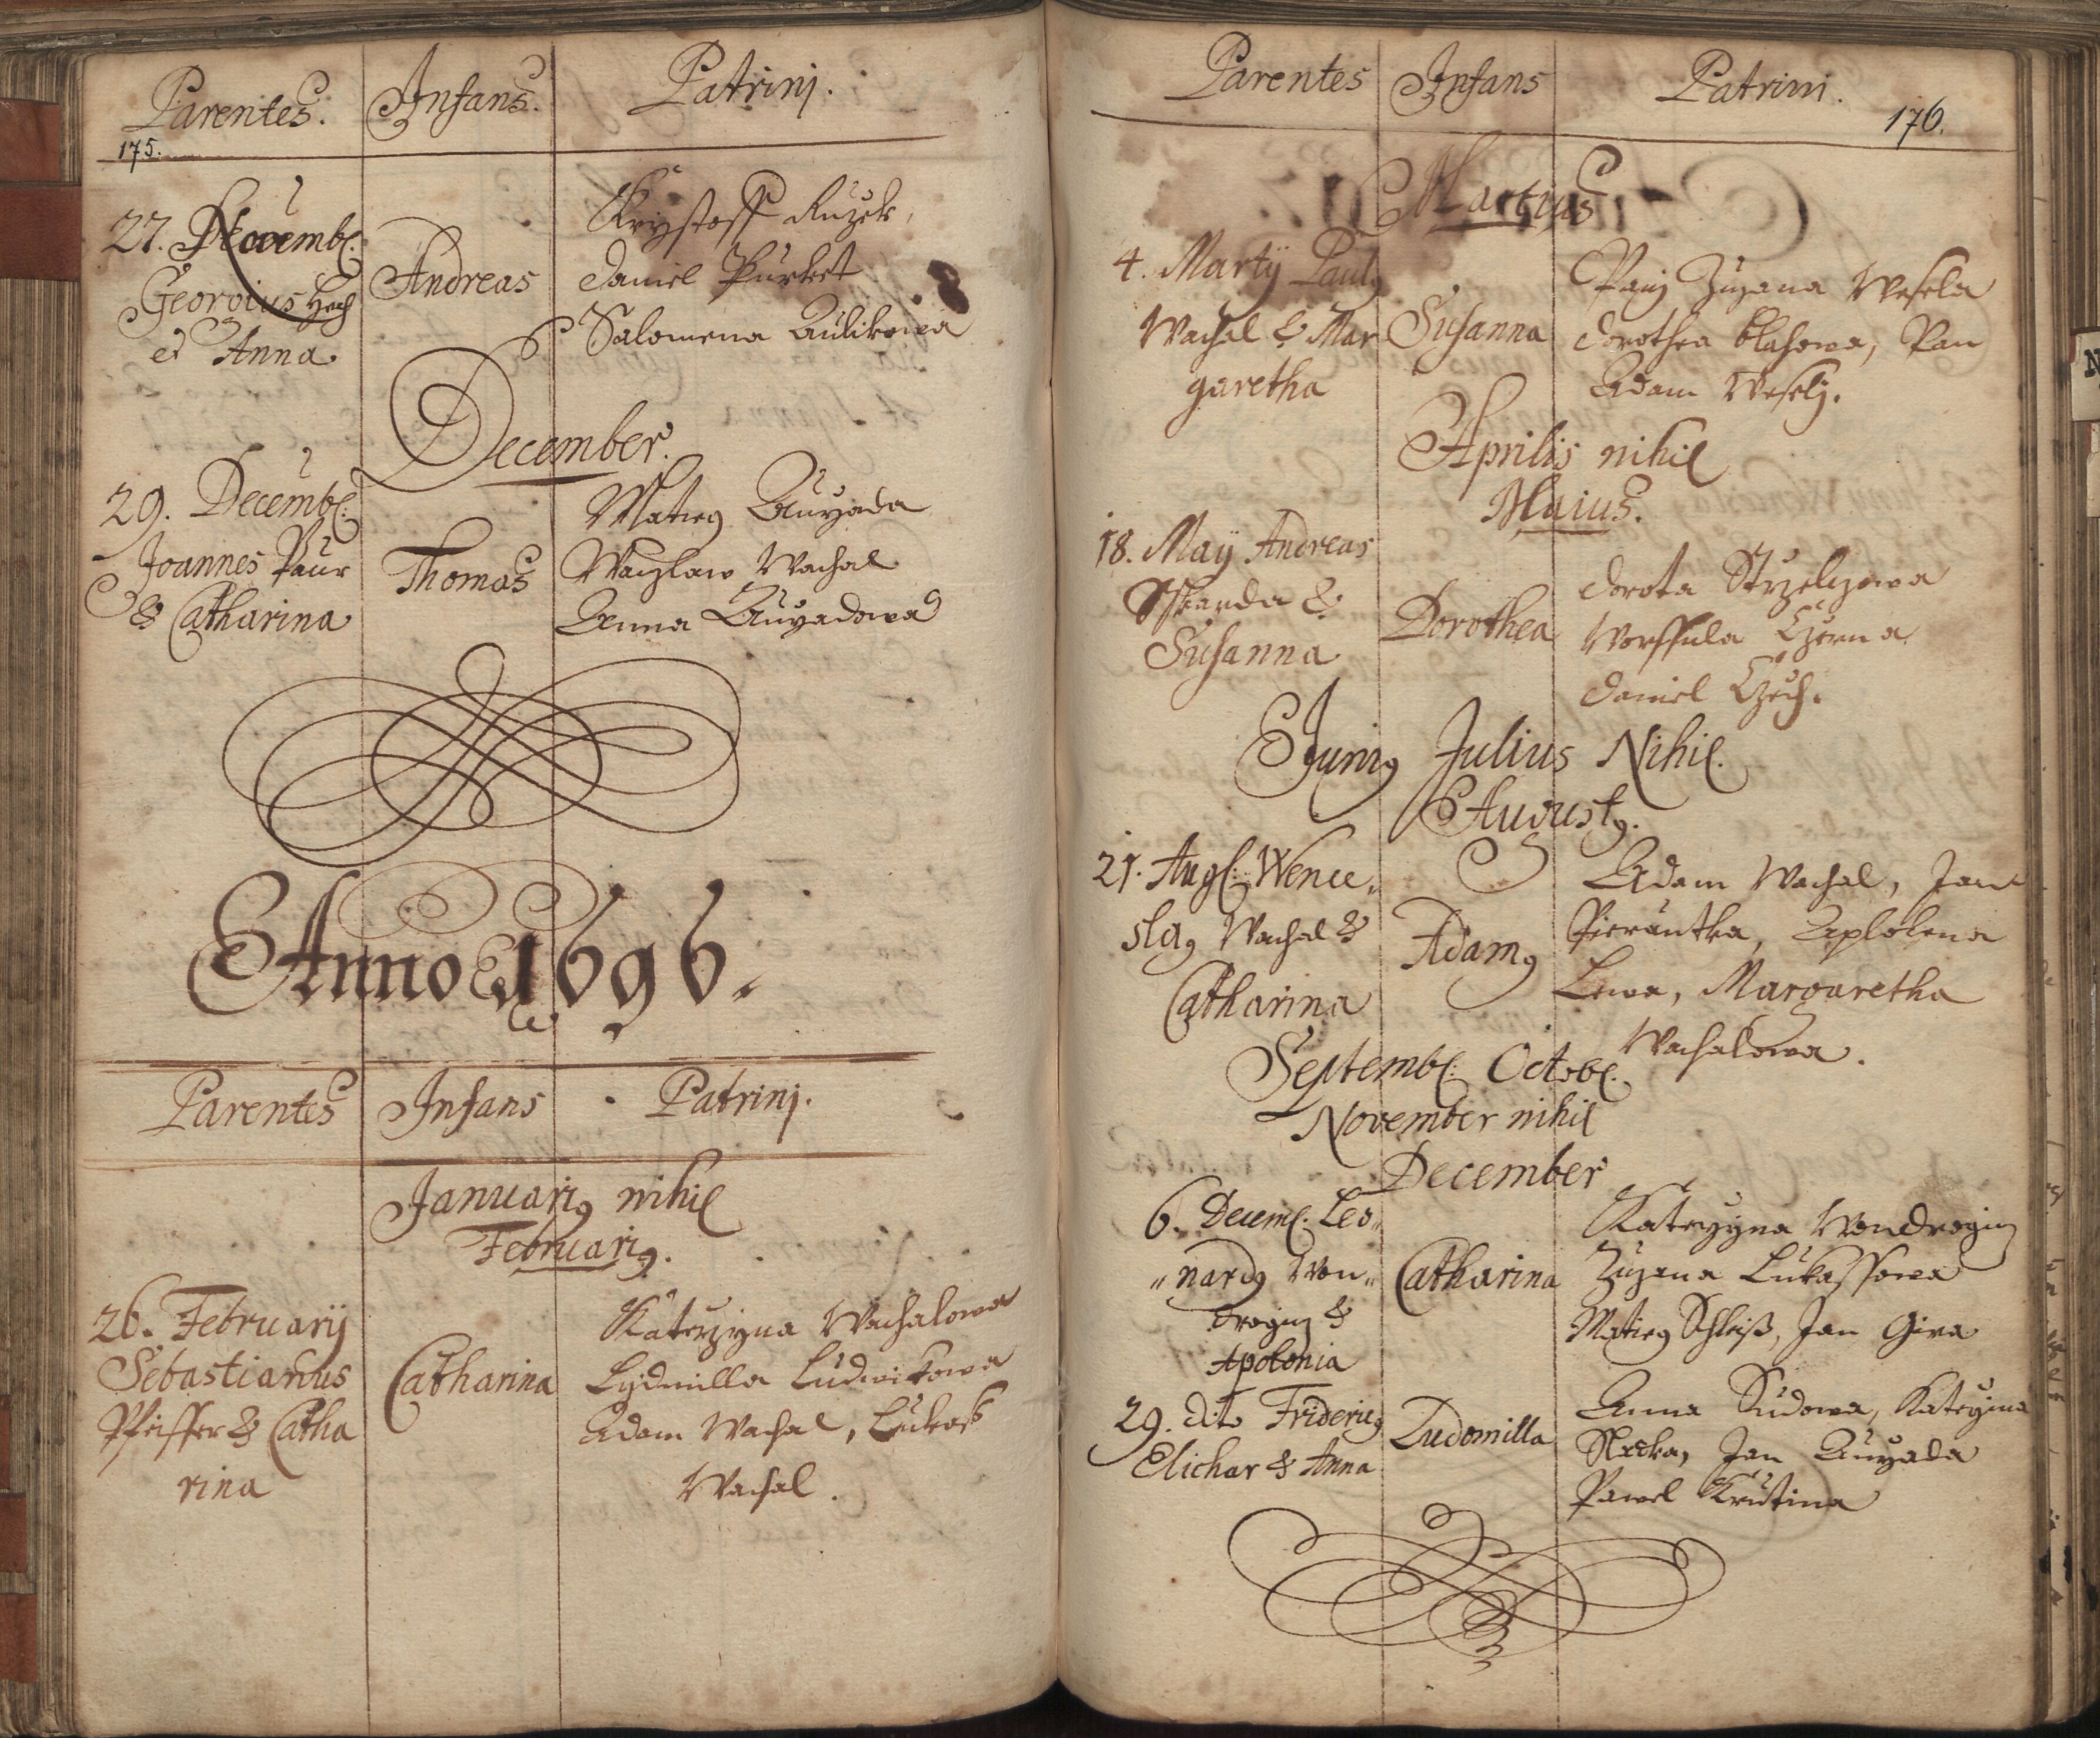 Parentes. Infans. Patrinj.
175.
27. Novemb:
Georgius Zech
et Anna
Andreas
Krystoff Ruzek,
Daniel Purket
Salomena Aulikowa
December.
29. Decemb:
Joannes Paur
& Catharina
Thomas
Matieg
Waczlaw Wachal
Anna
Anno 1696.
Parentes Infans Patrinj.
Januarig nihil
Februarig.
26. Februarij
Sebastianus
Pfeiffer & Catha
rina
Catharina
Katerzyna Wachalowa
Lydmilla Ludwikowa
Adam Wachal, Lukass
Wachal.
Parentes Infans Patrini.
176.
Martius
4. Martij Paulg
Wachal & Mar
garetha
Susanna
Panj Zuzana Wesela
Dorothea Blahowa, Pan
Adam Weselj.
Aprilis nihil
Maius.
18. Maij Andreas
&
Susanna
Dorothea
Dorota Strzelczowa
Worssula Czerna
Daniel Czech.
Junig Julius Nihil.
Augustg.
21. Aug: Wence„
slag Wachal &
Catharina
Adamg
Adam Wachal, Jan
Aplolena
Lewa, Margaretha
Wachalowa.
Septemb: Octob:
November nihil
December
6. Decem: Leo„
„nardg Von„
dragicz &
Apolonia
Catharina
Katerzyna Vondragicz
Zuzana Lukassowa
Matieg Schleiß, Jan Gira
29. dito Fridericg
Elichar & Anna
Ludomilla
Anna Sudowa, Katerzina
Jan
Pawel Krutina